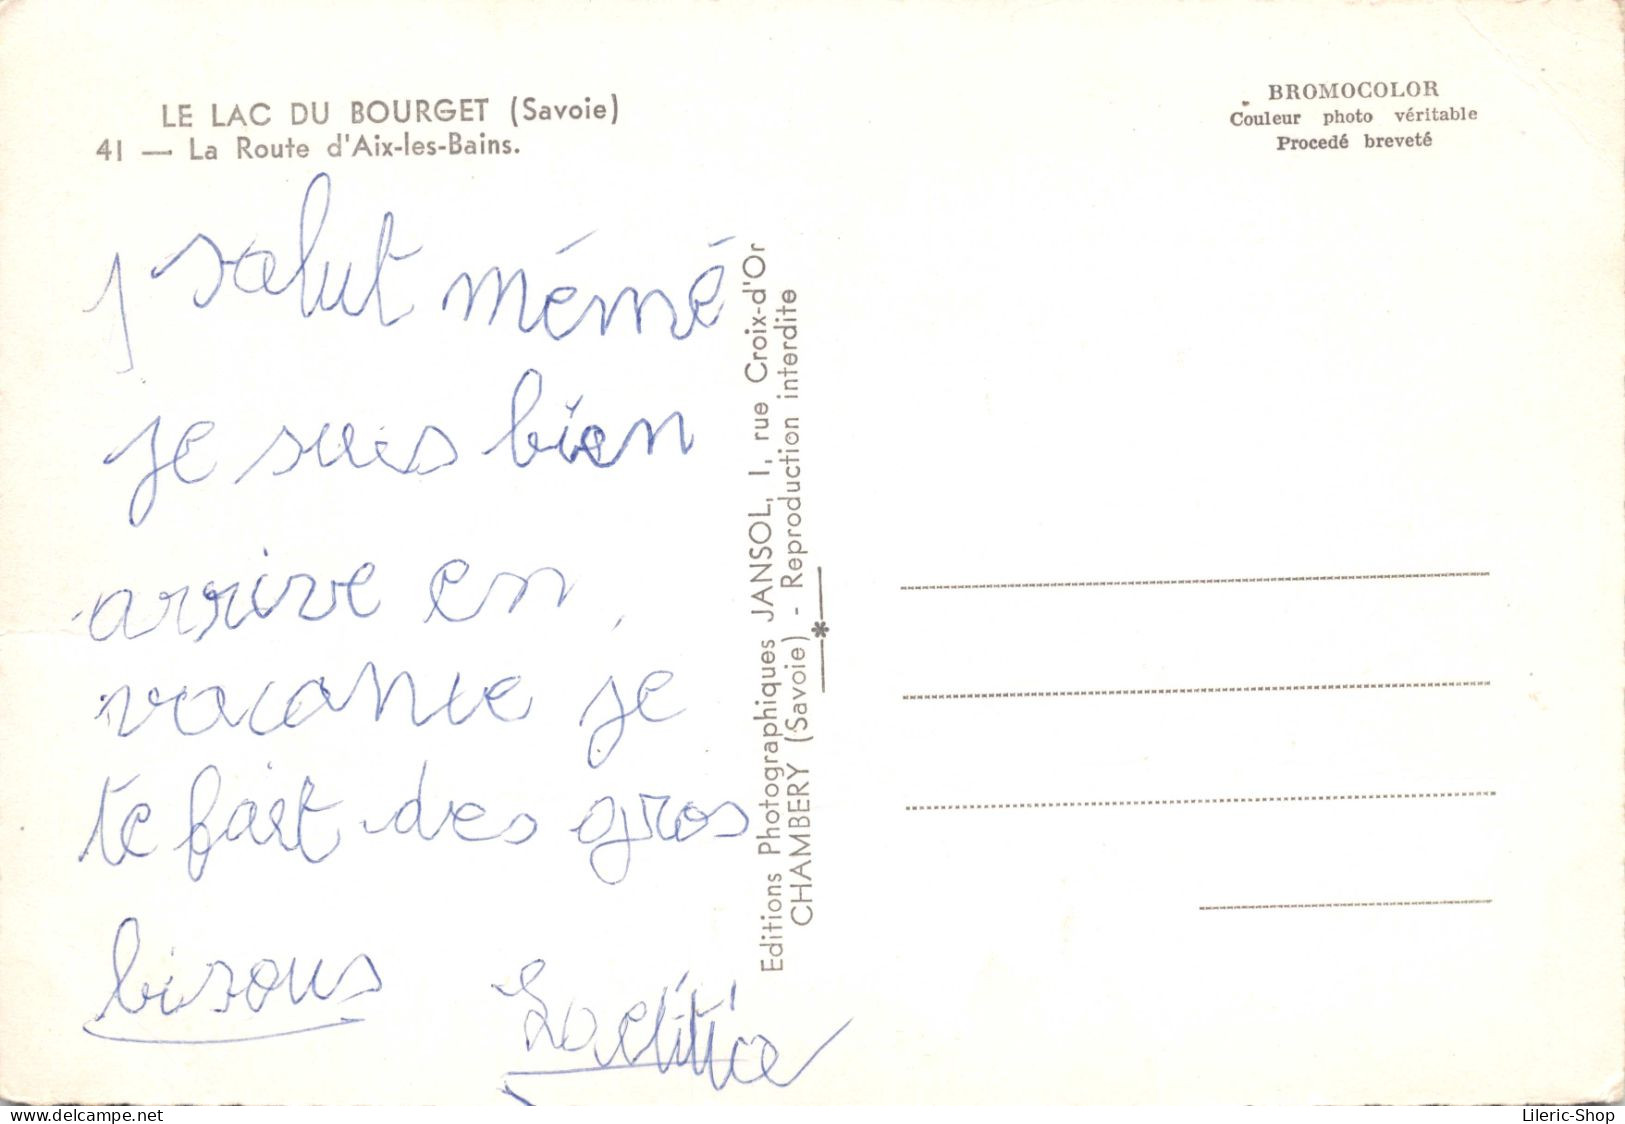 LE LAC DU BOURGET (Savoie)
41 — La Route d'Aix-les-Bains.
salut mémé
je suis bien
arrive en
vacance je
te fait des gros
bisous
Laetitia
Editions Photographiques JANSOL, 1, rue Croix-d'Or
CHAMBERY (Savoie) - Reproduction interdite
*
BROMOCOLOR
Couleur photo véritable
Procedé breveté
delcampe.net
Lileric-Shop